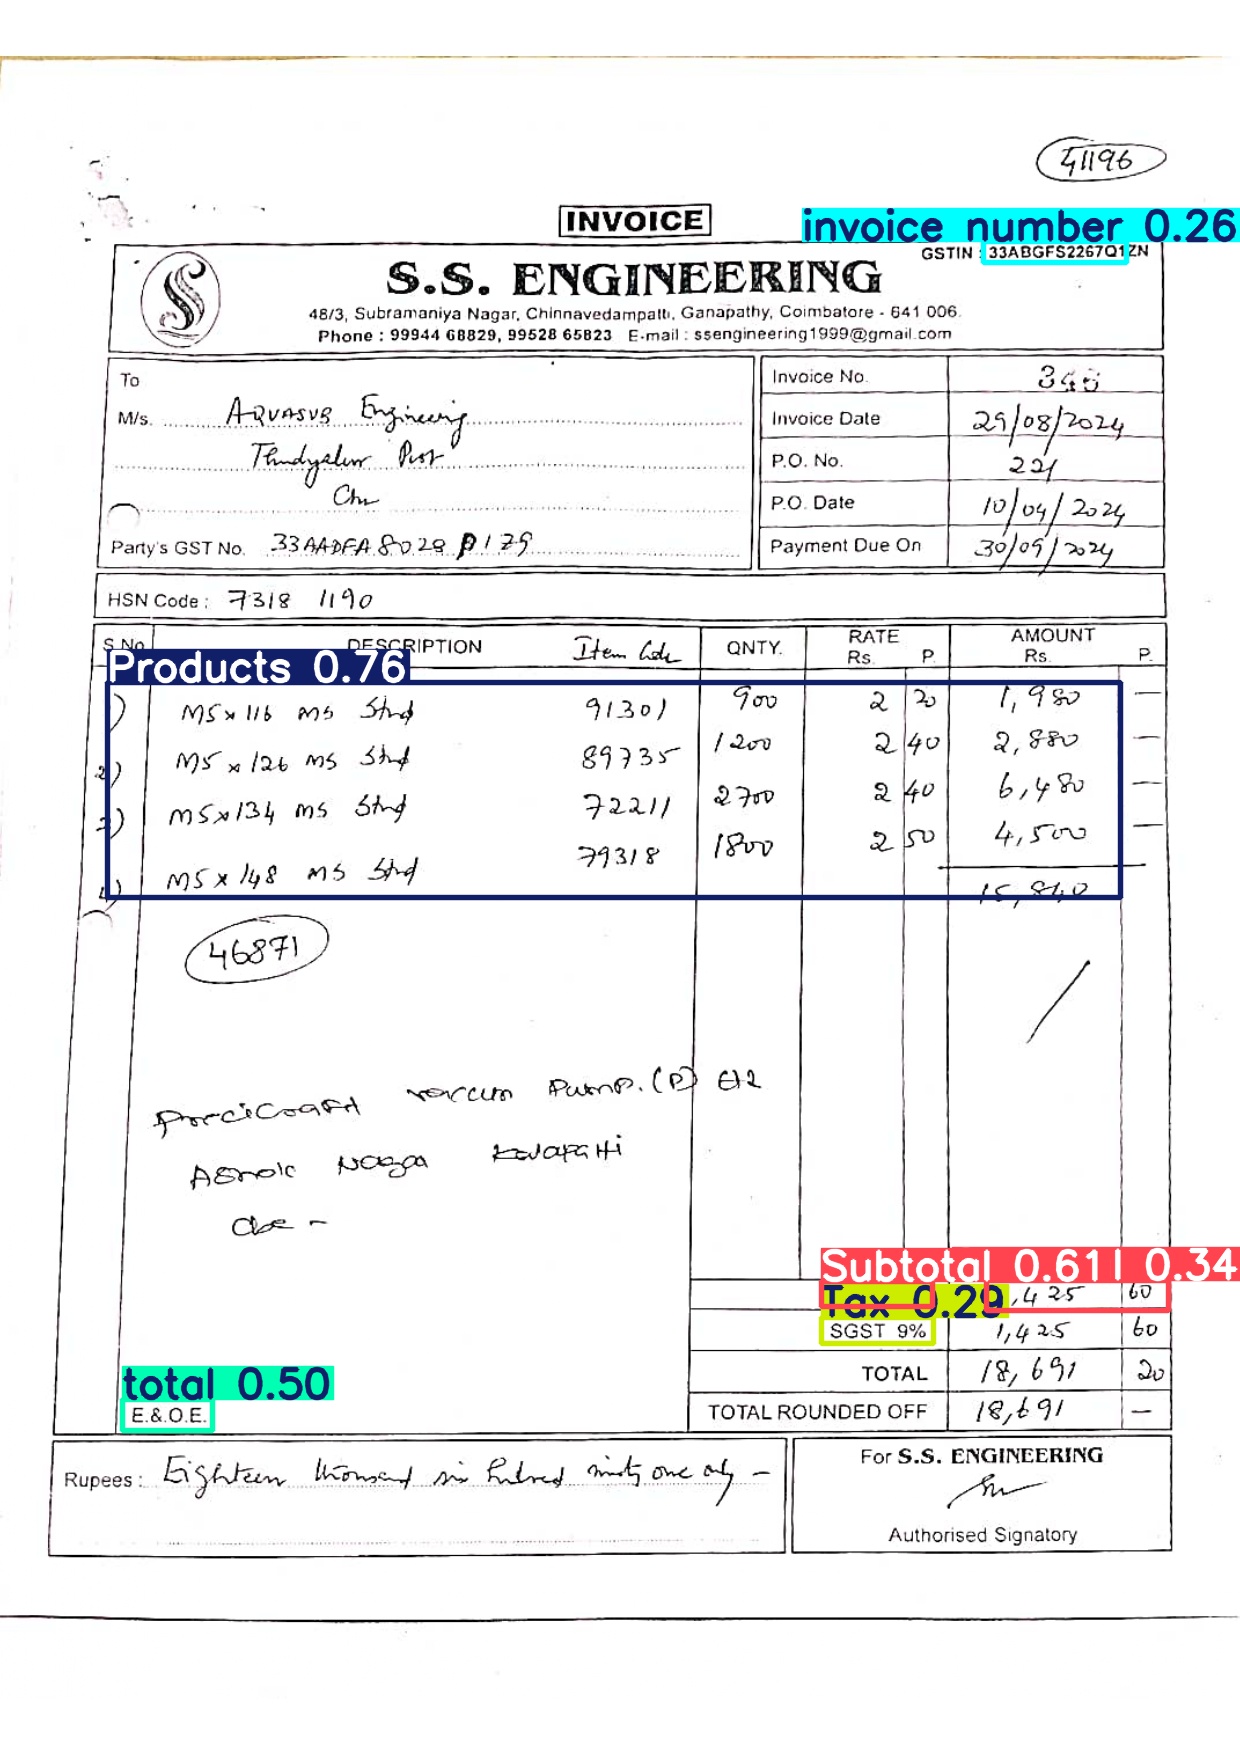 41196
INVOICE
invoice number 0.26
GSTIN : 33ABGFS2267Q1ZN
S.S. ENGINEERING
48/3, Subramaniya Nagar, Chinnavedampatti, Ganapathy, Coimbatore - 641 006.
Phone : 99944 68829, 99528 65823 E-mail : ssengineering1999@gmail.com
To
M/s. Aquasub Engineering
Thudiyalur Post
Cbe
Party's GST No. 33AADFA8028P1Z9
Invoice No.
Invoice Date 29/08/2024
P.O. No. 221
P.O. Date 10/04/2024
Payment Due On 30/09/2024
HSN Code : 7318 1190
S.No. DESCRIPTION Item Code QNTY. RATE Rs. P. AMOUNT Rs. P.
Products 0.76
1) M5x116 MS Stud 91301 900 2 20 1,980 —
2) M5x126 MS Stud 89735 1200 2 40 2,880 —
3) M5x134 MS Stud 72211 2700 2 40 6,480 —
4) M5x148 MS Stud 79318 1800 2 50 4,500 —
15,840
46871
Pump. (P)
Cbe -
Subtotal 0.61 0.34
Tax 0.29 1,425 60
SGST 9% 1,425 60
TOTAL 18,691 20
TOTAL ROUNDED OFF 18,691 —
total 0.50
E.&.O.E.
Rupees : Eighteen thousand six hundred ninety one only -
For S.S. ENGINEERING
Authorised Signatory